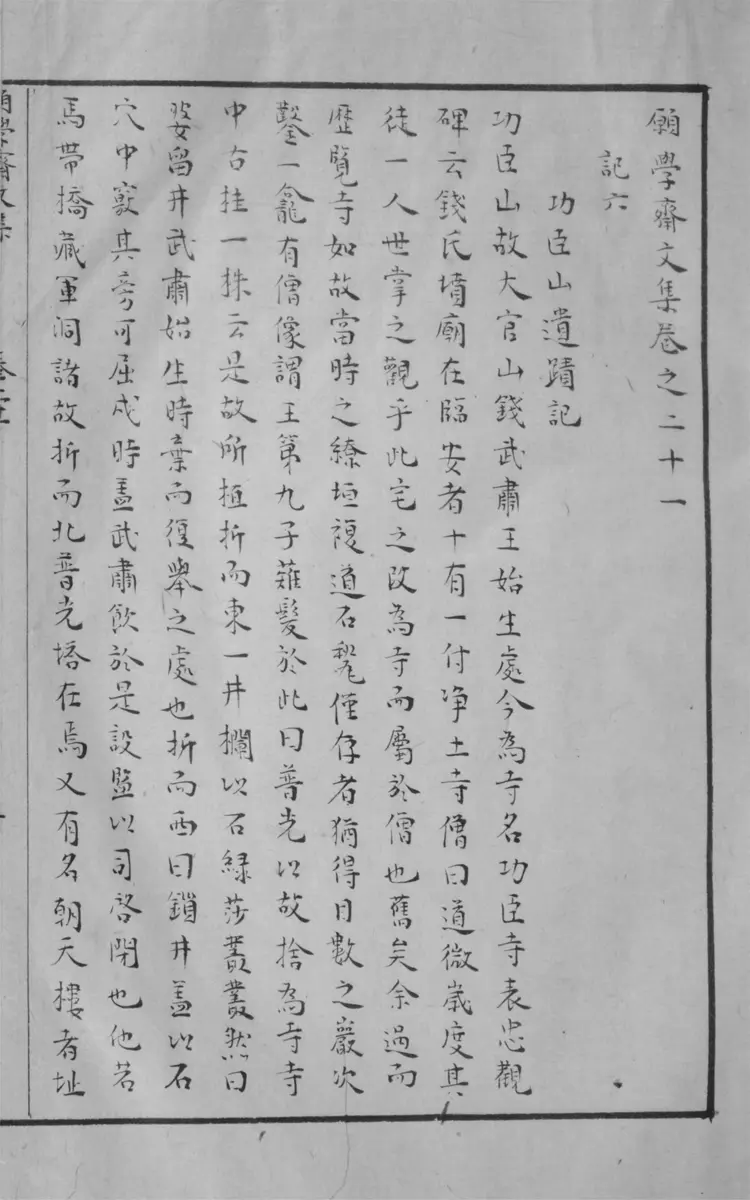 願學齋文集卷之二十一
記六
功臣山遺蹟記
功臣山故大官山錢武肅王始生處今為寺名功臣寺表忠觀
碑云錢氏墳廟在臨安者十有一付净土寺僧曰道微歲度其
徒一人世掌之觀乎此宅之改為寺而屬於僧也舊矣余過而
歷覽寺如故當時之繚垣複道石甃僅存者猶得目數之巖次
鑿一龕有僧像謂王第九子薙髮於此曰普光以故捨為寺寺
中古桂一株云是故所植折而東一井欄以石綠莎叢叢然曰
婆留井武肅始生時棄而復舉之處也折而西曰鎖井蓋以石
穴中竅其旁可屈戍時盖武肅飲於是設監以司啓閉也他若
馬帶橋藏軍洞諸故折而北普光塔在焉又有名朝天樓者址
願學齋文集